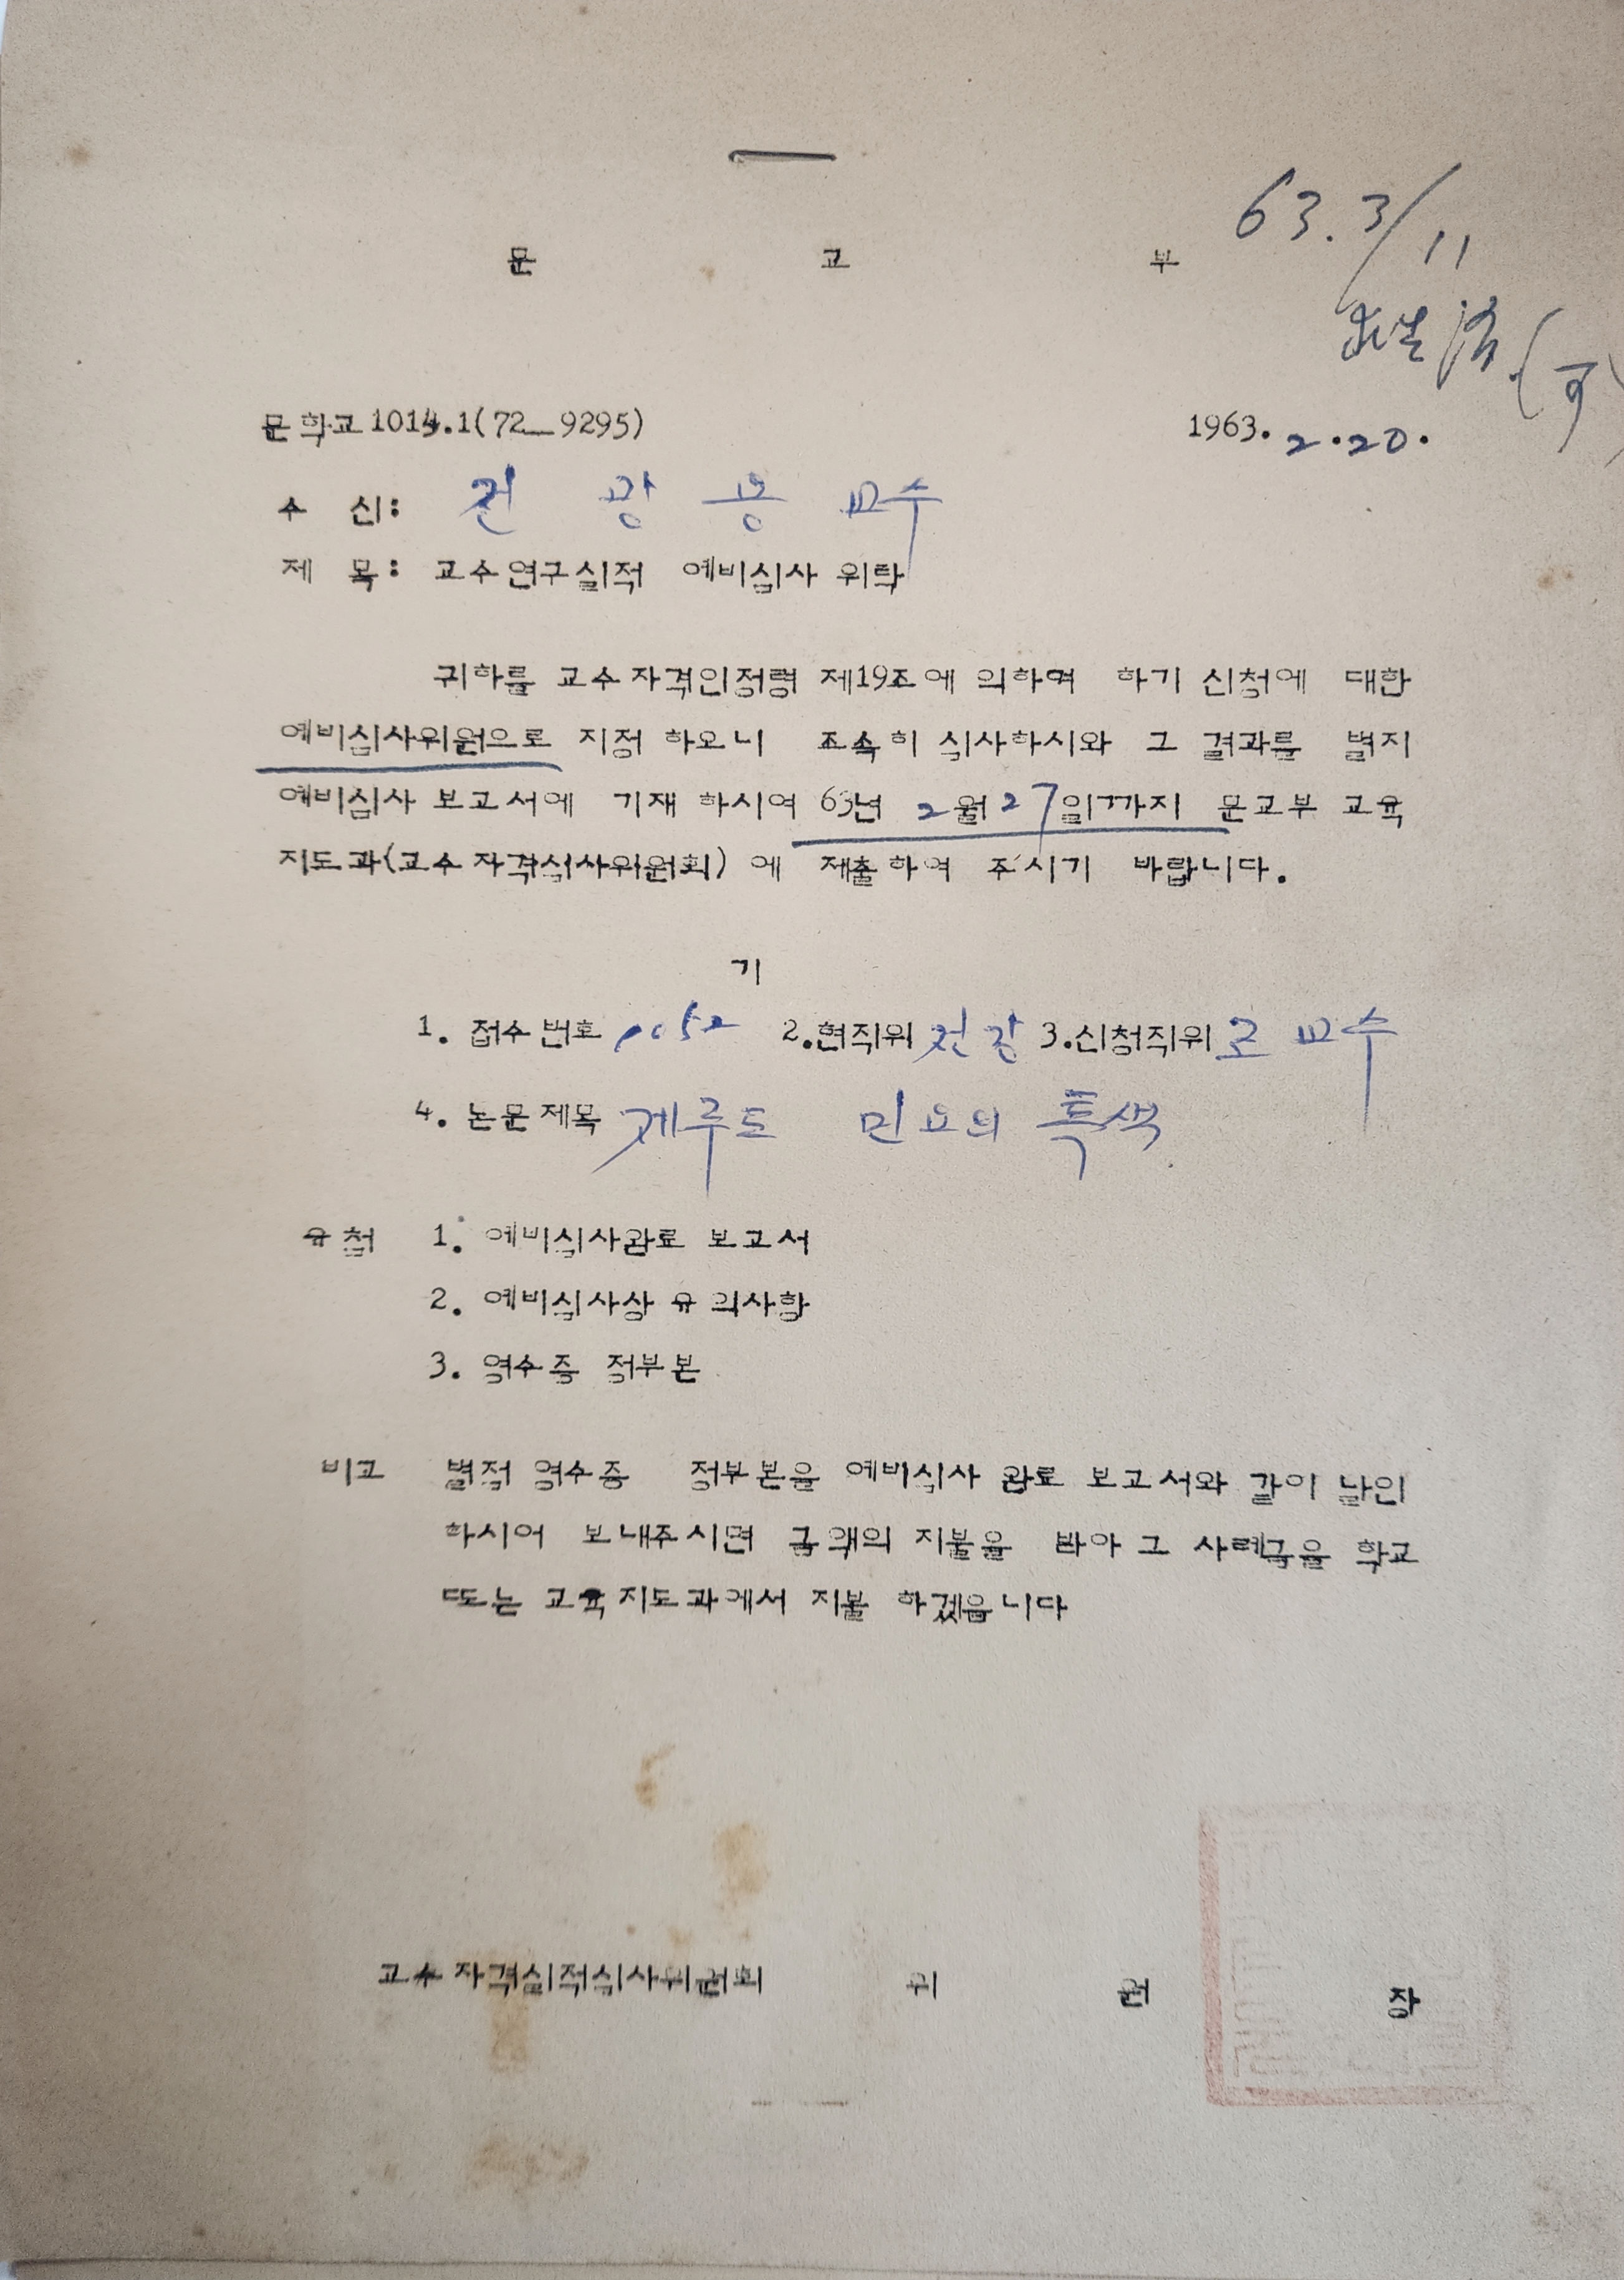 63. 3/11
문 교 부
(可)
문학교1014.1(72_9295) 1963. 2.20.
수 신: 전 광 용 교수
제 목: 교수연구실적 예비심사 위탁
귀하를 교수자격인정령 제19조에 의하여 하기 신청에 대한
예비심사위원으로 지정 하오니 조속히 심사하시와 그 결과를 별지
예비심사 보고서에 기재 하시여 63년 2월 27일까지 문교부 교육
지도과(교수자격심사위원회) 에 제출하여 주시기 바랍니다.
기
1. 접수번호 2.현직위 전강 3.신청직위 조교수
4. 논문제목 제주도 민요의 특색
유첨 1. 예비심사완료 보고서
2. 예비심사상 유의사항
3. 영수증 정부본
비고 별첨 영수증 정부본을 예비심사 완료 보고서와 같이 날인
하시어 보내주시면 금액의 지불을 받아 그 사례금을 학교
또는 교육지도과에서 지불 하겠읍니다
교수자격실적심사위원회 위 원 장